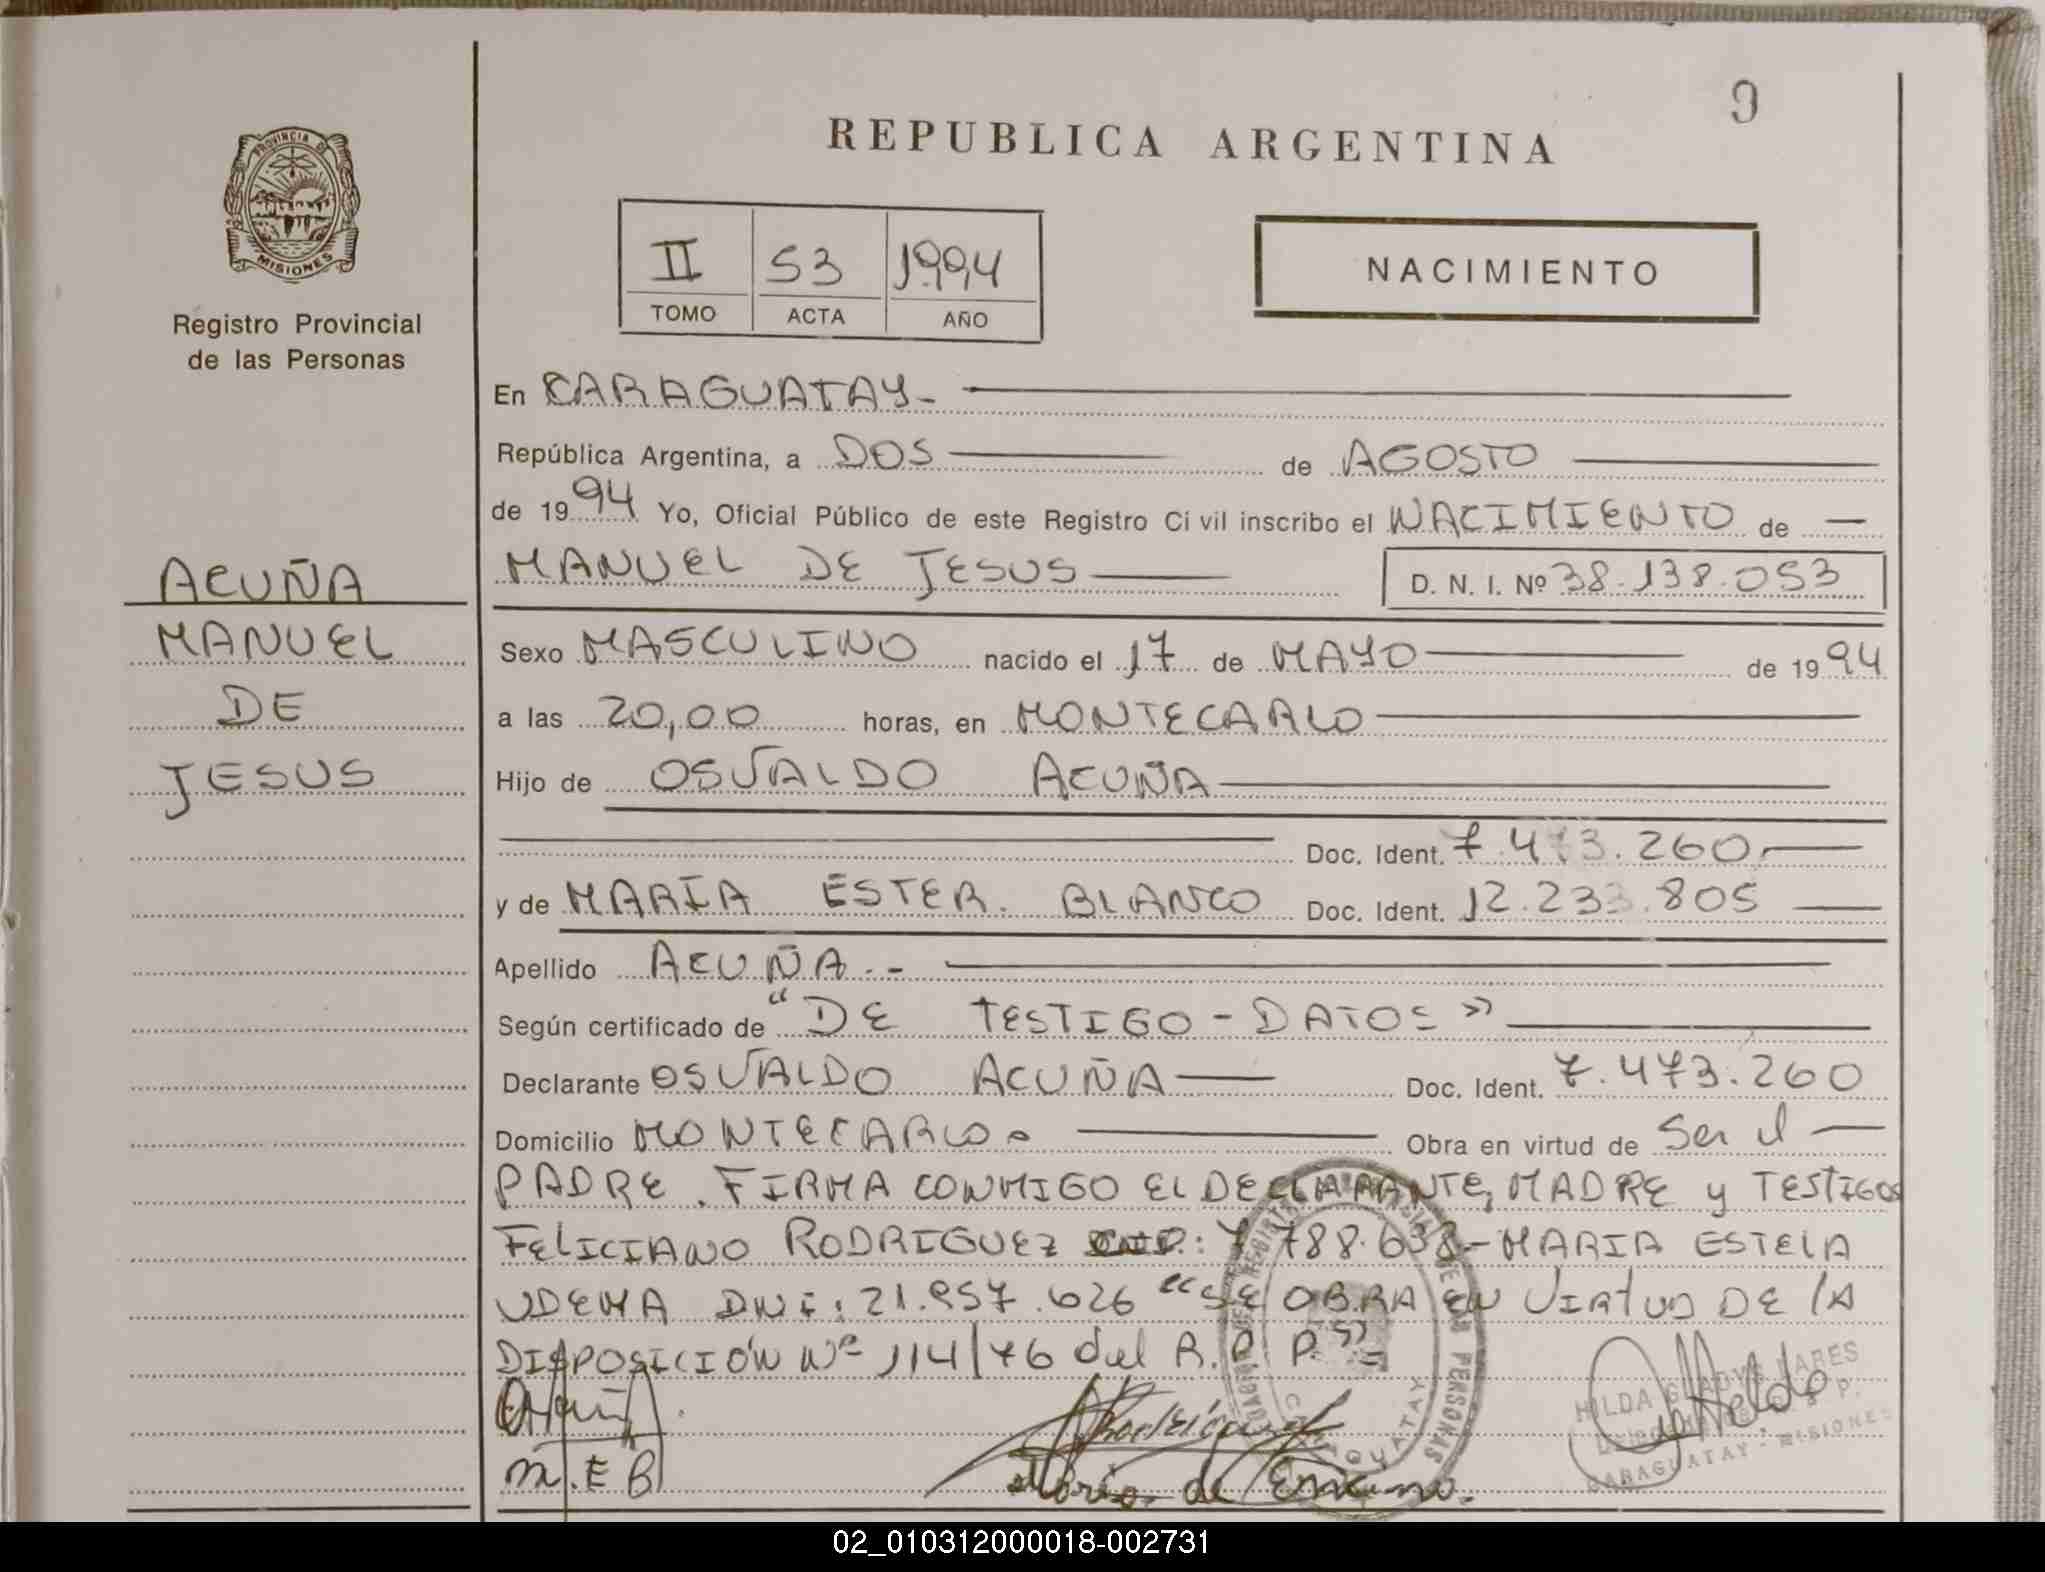 9
REPUBLICA ARGENTINA
PROVINCIA DE
MISIONES
II 53 1994
TOMO ACTA AÑO
NACIMIENTO
Registro Provincial
de las Personas
En CARAGUATAY-
República Argentina, a DOS de AGOSTO
de 1994 Yo, Oficial Público de este Registro Civil inscribo el NACIMIENTO de
MANUEL DE JESUS D. N. I. Nº 38.138.053
ACUÑA
MANUEL
DE
JESUS
Sexo MASCULINO nacido el 17 de MAYO de 1994
a las 20,00 horas, en MONTECARLO
Hijo de OSVALDO ACUÑA
Doc. Ident. 7.473.260.
y de MARÍA ESTER. BLANCO Doc. Ident. 12.233.805
Apellido ACUÑA.-
Según certificado de "DE TESTIGO-DATOS"
Declarante OSVALDO ACUÑA Doc. Ident. 7.473.260
Domicilio MONTECARLO. Obra en virtud de Ser el
PADRE. FIRMA CONMIGO EL DECLARANTE, MADRE y TESTIGOS
FELICIANO RODRIGUEZ : 7.788.638-MARIA ESTELA
UDEMA DNI: 21.957.626 "SE OBRA EN VIRTUD DE LA
DISPOSICIÓN Nº 114/76 del R.P.P."
M.E B
HILDA GLADYS
CARAGUATAY - MISIONES
02_010312000018-002731